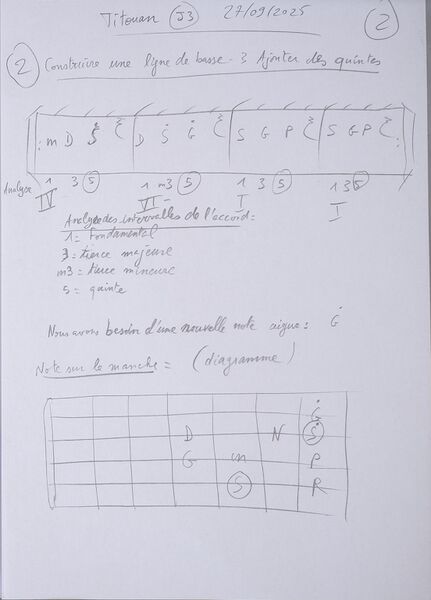 Titouan J3 27/09/2025 2
2 Construire une ligne de basse - 3 Ajouter des quintes
: m D Ṡ | D Ṡ Ġ | S G P | S G P :
Analyse 1 3 5 1 m3 5 1 3 5 1 3 5
IV VI- I I
Analyse des intervalles de l'accord :
1 = Fondamental
3 = tierce majeure
m3 = tierce mineure
5 = quinte
Nous avons besoin d'une nouvelle note aigue : Ġ
Note sur le manche = (diagramme)
Ġ
D N Ṡ
G m P
S R